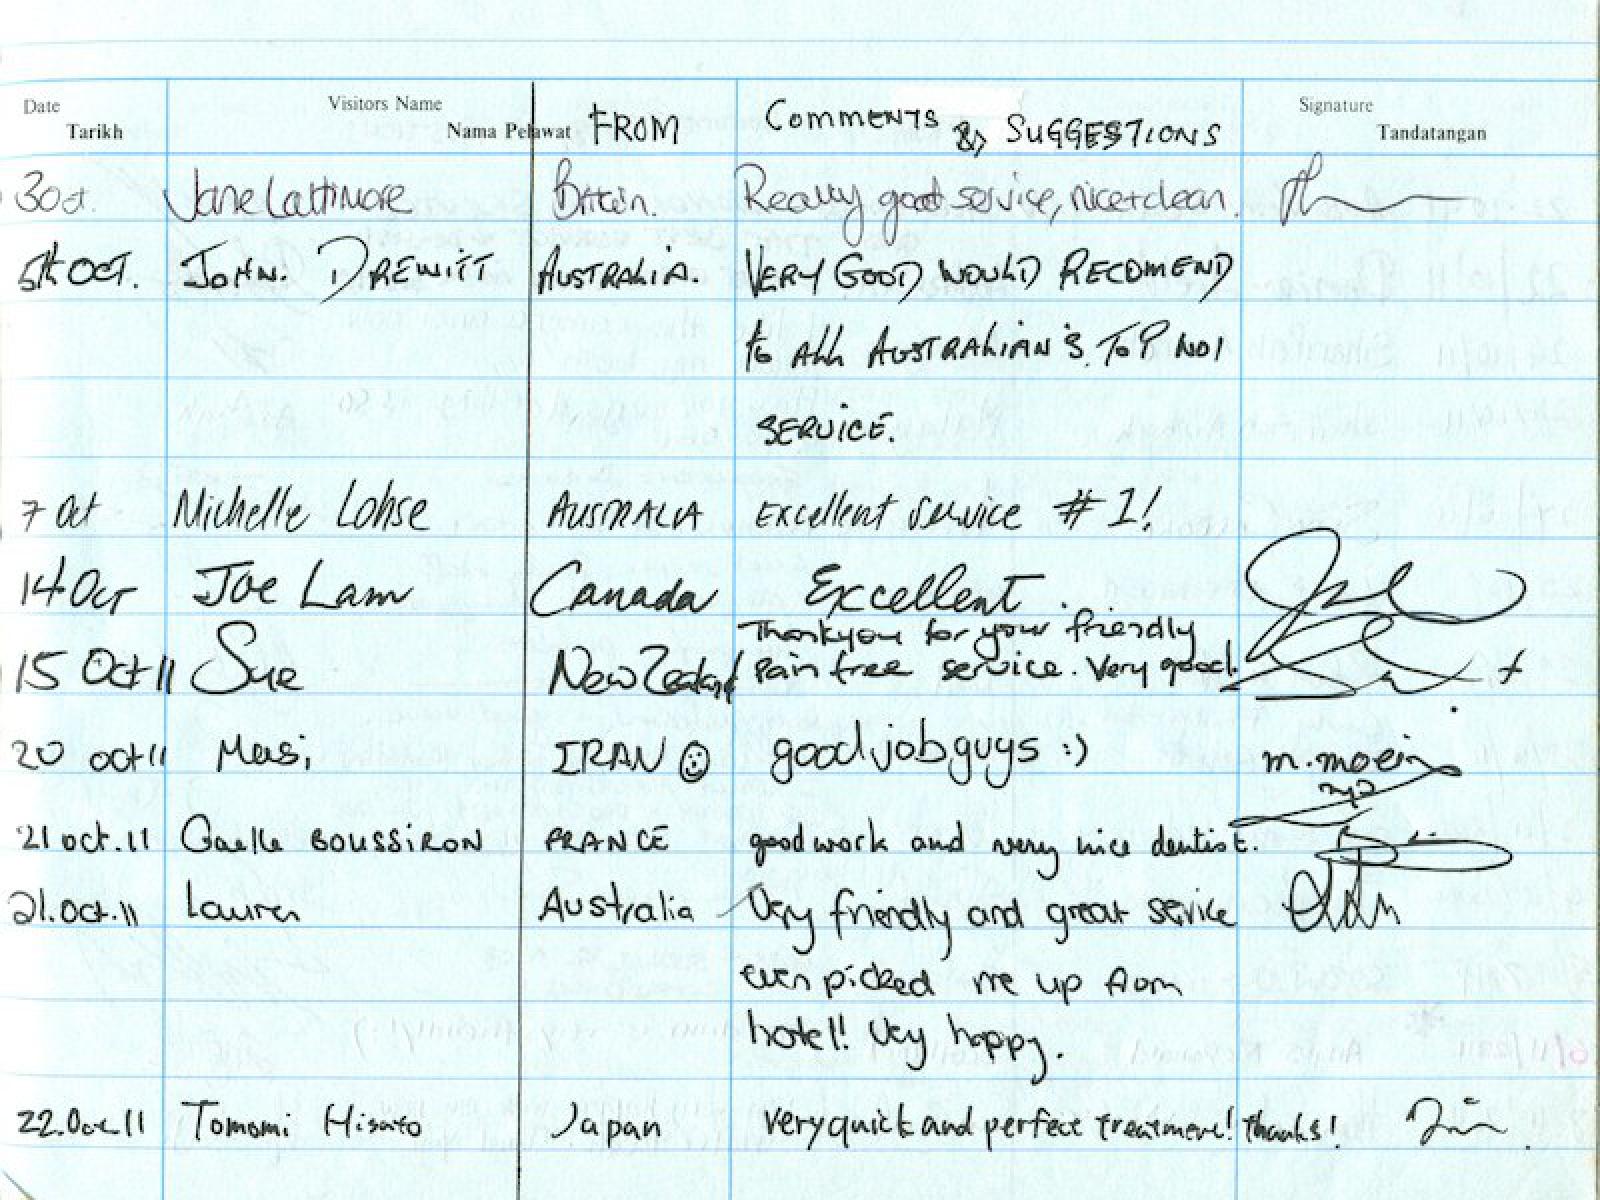 Date Visitors Name Signature
Tarikh Nama Pelawat FROM Comments & SUGGESTIONS Tandatangan
3Oct. Jane Lattimore Britain. Really good service, nice+clean.
5th OCT. JOHN. DREWITT AUSTRALIA. VERY GOOD WOULD RECOMEND
to ALL AUSTRALIAN'S. TOP NO1
SERVICE.
7 Oct Michelle Lohse AUSTRALIA Excellent service #1!
14 Oct Joe Lam Canada Excellent.
Thankyou for your friendly
15 Oct 11 Sue New Zealand pain free service. Very good!
20 oct 11 Masi IRAN ☺ good job guys :) m.moein
21 oct.11 Gaelle BOUSSIRON FRANCE good work and very nice dentist.
21.Oct.11 Lauren Australia Very friendly and great service
even picked me up from
hotel! Very happy.
22.Oct.11 Tomomi Hisato Japan Very quick and perfect treatment! Thanks!